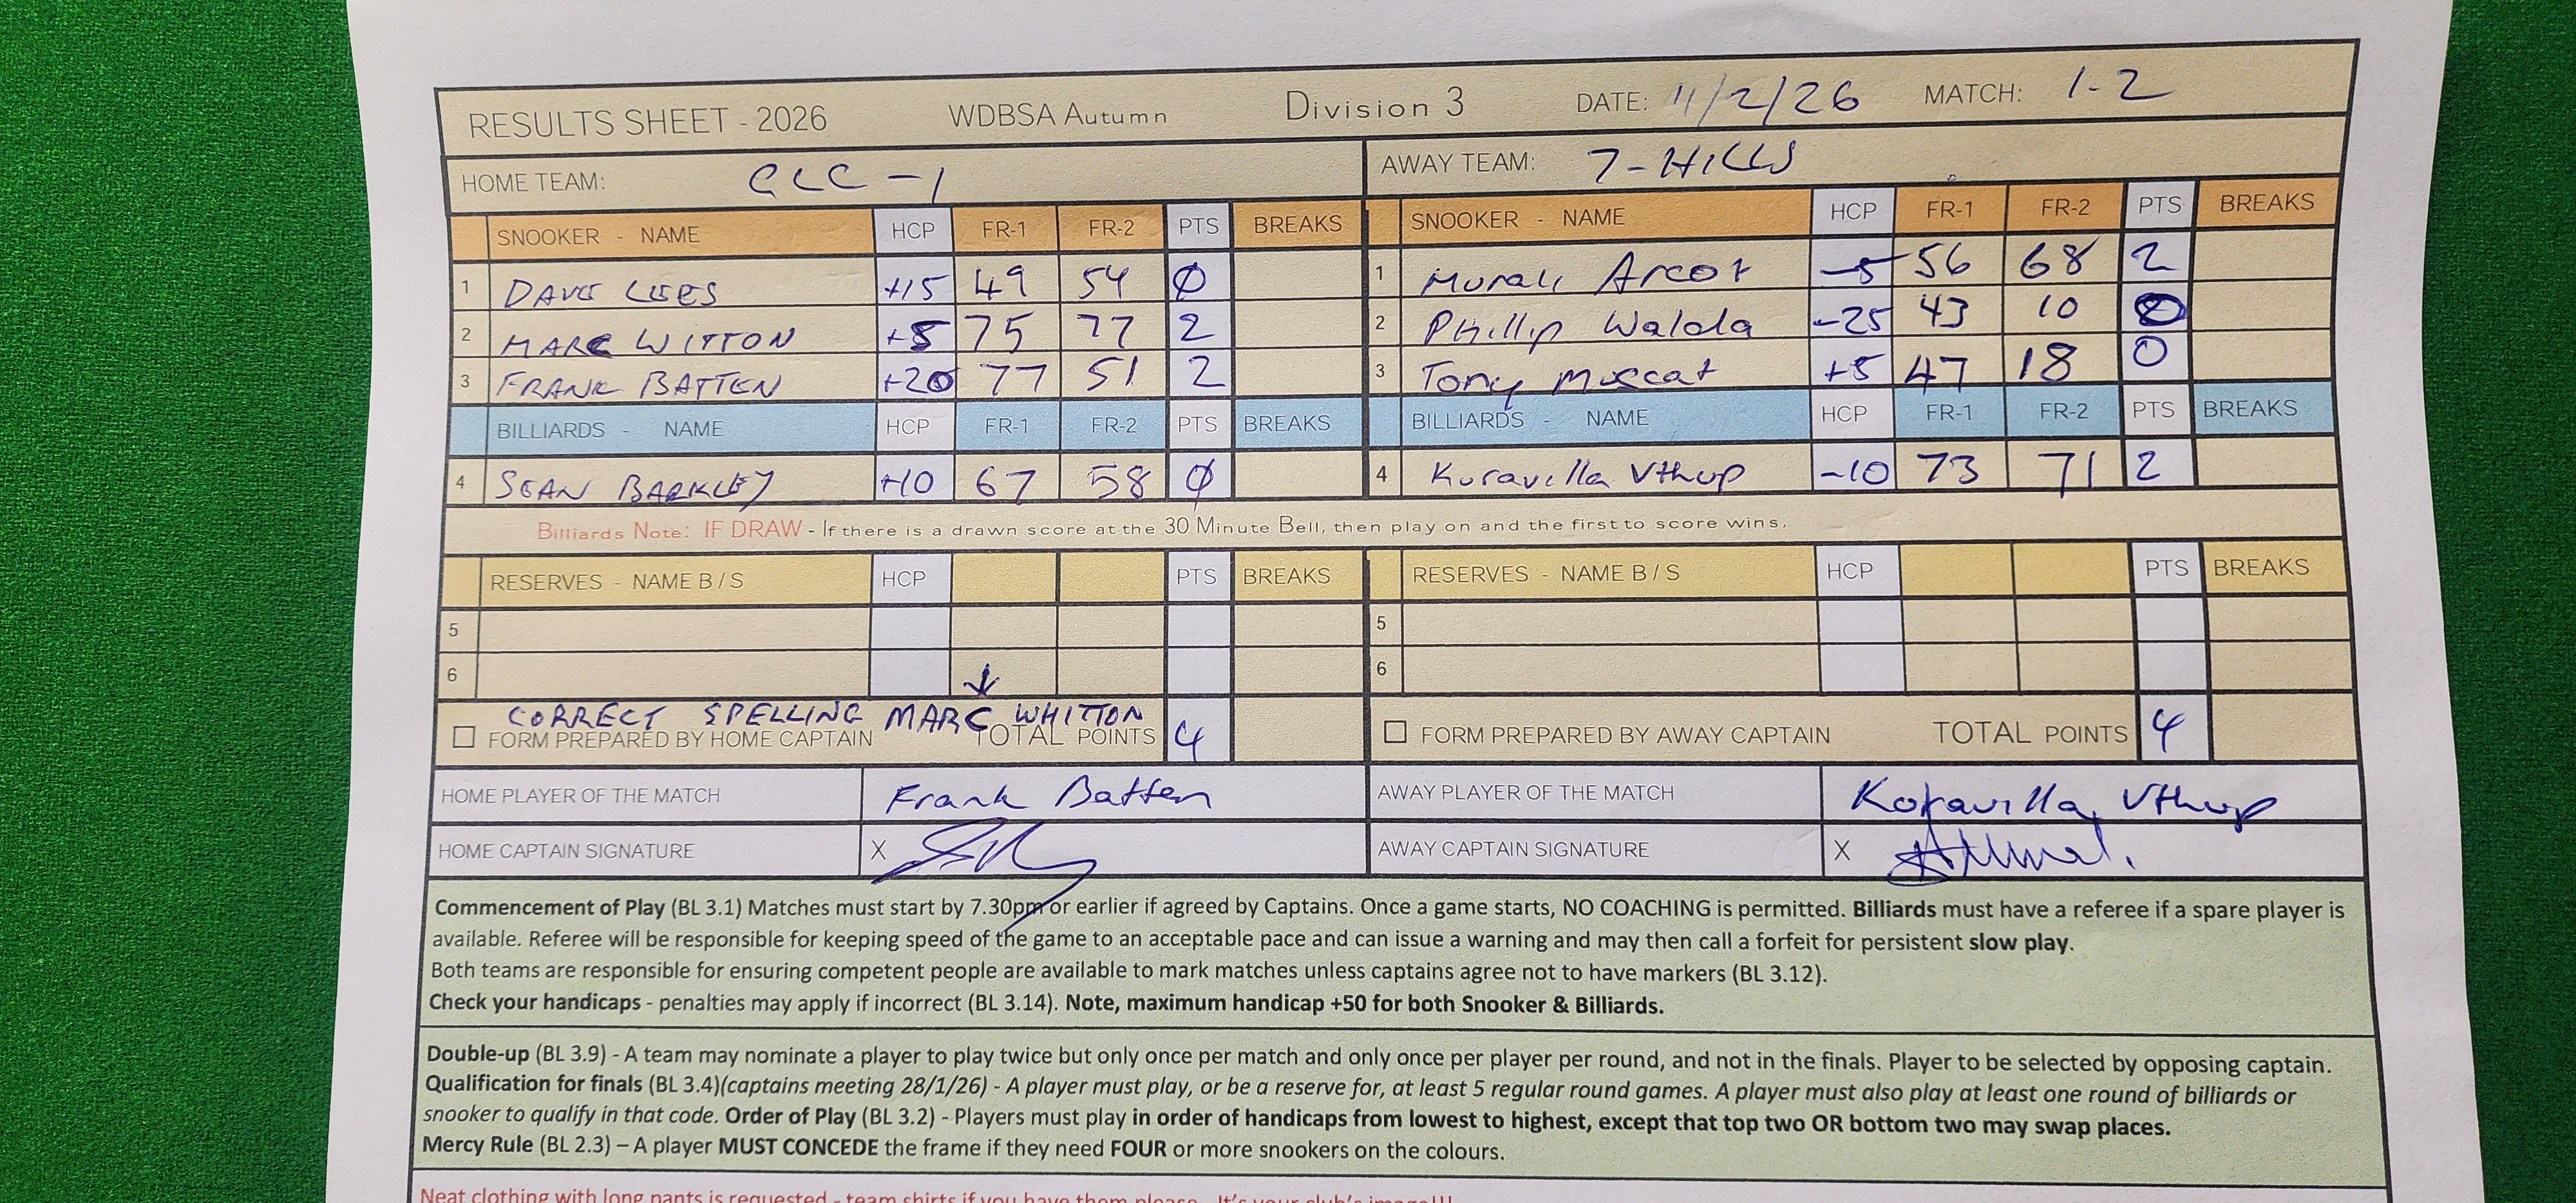 RESULTS SHEET - 2026 WDBSA Autumn Division 3 DATE: 11/2/26 MATCH: 1-2
HOME TEAM: GCC-1 AWAY TEAM: 7-HILLS
SNOOKER - NAME HCP FR-1 FR-2 PTS BREAKS SNOOKER - NAME HCP FR-1 FR-2 PTS BREAKS
1 DAVE LEES +15 49 54 0 1 Murali Arcot -5 56 68 2
2 MARC WITTON +5 75 77 2 2 Phillip Walda -25 43 10 0
3 FRANK BATTEN +20 77 51 2 3 Tony Muscat +5 47 18 0
BILLIARDS - NAME HCP FR-1 FR-2 PTS BREAKS BILLIARDS - NAME HCP FR-1 FR-2 PTS BREAKS
4 SEAN BARKLEY +10 67 58 0 4 Kuravilla Vthup -10 73 71 2
Billiards Note: IF DRAW - If there is a drawn score at the 30 Minute Bell, then play on and the first to score wins.
RESERVES - NAME B / S HCP PTS BREAKS RESERVES - NAME B / S HCP PTS BREAKS
5 5
6 6
CORRECT SPELLING MARC WHITTON
FORM PREPARED BY HOME CAPTAIN TOTAL POINTS 4 FORM PREPARED BY AWAY CAPTAIN TOTAL POINTS 4
HOME PLAYER OF THE MATCH Frank Batten AWAY PLAYER OF THE MATCH Koravilla Vthup
HOME CAPTAIN SIGNATURE X AWAY CAPTAIN SIGNATURE X
Commencement of Play (BL 3.1) Matches must start by 7.30pm or earlier if agreed by Captains. Once a game starts, NO COACHING is permitted. Billiards must have a referee if a spare player is
available. Referee will be responsible for keeping speed of the game to an acceptable pace and can issue a warning and may then call a forfeit for persistent slow play.
Both teams are responsible for ensuring competent people are available to mark matches unless captains agree not to have markers (BL 3.12).
Check your handicaps - penalties may apply if incorrect (BL 3.14). Note, maximum handicap +50 for both Snooker & Billiards.
Double-up (BL 3.9) - A team may nominate a player to play twice but only once per match and only once per player per round, and not in the finals. Player to be selected by opposing captain.
Qualification for finals (BL 3.4)(captains meeting 28/1/26) - A player must play, or be a reserve for, at least 5 regular round games. A player must also play at least one round of billiards or
snooker to qualify in that code. Order of Play (BL 3.2) - Players must play in order of handicaps from lowest to highest, except that top two OR bottom two may swap places.
Mercy Rule (BL 2.3) – A player MUST CONCEDE the frame if they need FOUR or more snookers on the colours.
Neat clothing with long pants is requested - team shirts if you have them please. It's your club's image!!!